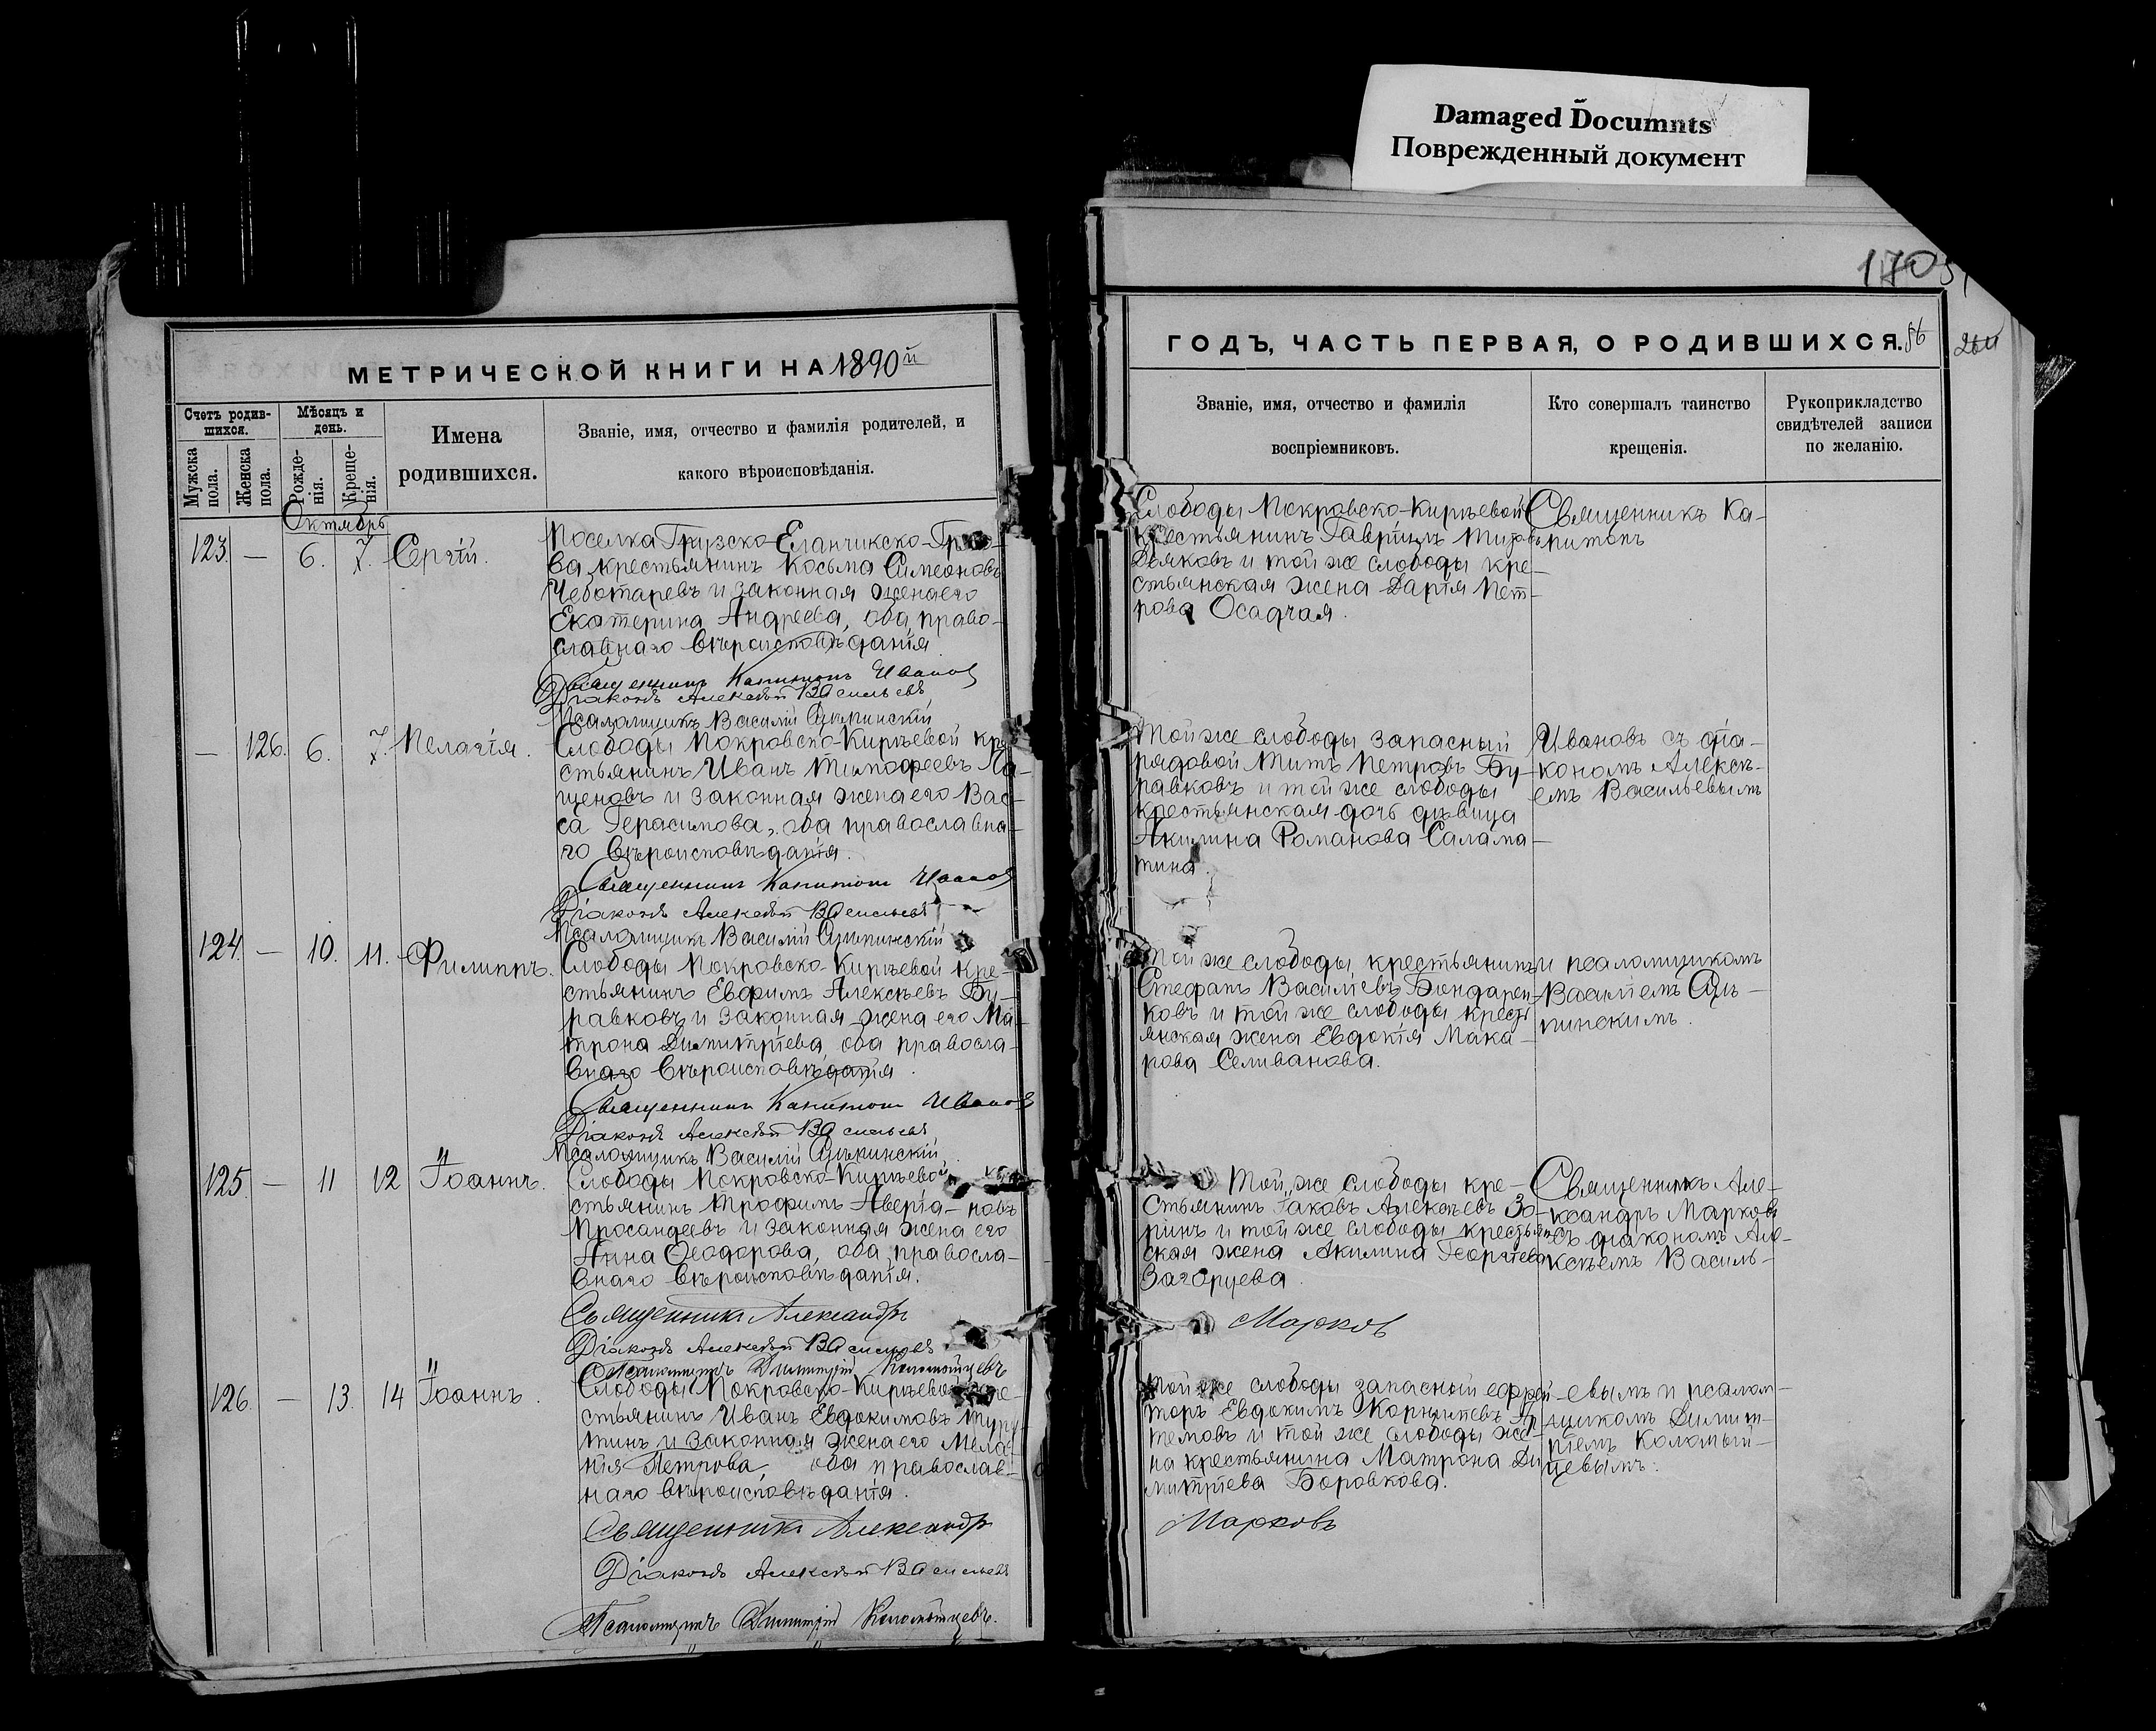 Damaged Documnts
Поврежденный документ
170
МЕТРИЧЕСКОЙ КНИГИ НА 1890й
Счетъ родив-
шихся.
Мѣсяцъ и
день.
Мужска
пола.
Женска
пола.
Рожде-
нія.
Креще-
нія.
Имена
родившихся.
Званіе, имя, отчество и фамилія родителей, и
какого вѣроисповѣданія.
Октябрь
123. — 6. 7. Сергій.
Поселка Грузско-Еланчикско-
ва крестьянинъ Косьма Симеоновъ
Чеботаревъ и законная жена его
Екатерина Андреева, оба право-
славнаго вѣроисповѣданія.
Священникъ Капитонъ Ивановъ
Діаконъ Алексѣй Васильевъ
Псаломщикъ Василій
— 126. 6. 7. Пелагія.
Слободы Покровско-Кирѣевой кре-
стьянинъ Иванъ Тимофеевъ Ла-
щеновъ и законная жена его Вас-
са Герасимова, оба православна-
го вѣроисповѣданія.
Священникъ Капитонъ Ивановъ
Діаконъ Алексѣй Васильевъ
Псаломщикъ Василій
124. — 10. 11. Филиппъ.
Слободы Покровско-Кирѣевой кре-
стьянинъ Евфимъ Алексѣевъ Бу-
равковъ и законная жена его Ма-
трона Димитріева, оба правосла-
внаго вѣроисповѣданія.
Священникъ Капитонъ Ивановъ
Діаконъ Алексѣй Васильевъ
Псаломщикъ Василій
125. — 11 12 Іоаннъ.
Слободы Покровско-Кирѣевой
стьянинъ Трофимъ Аверіа-новъ
Просандеевъ и законная жена его
Анна Ѳеодорова, оба правосла-
внаго вѣроисповѣданія.
Священникъ Александръ
Діаконъ Алексѣй Васильевъ
Псаломщикъ Димитрій Коломойцевъ
126. — 13. 14 Іоаннъ.
Слободы Покровско-Кирѣевой кре-
стьянинъ Иванъ Евдокимовъ Туру-
тинъ и законная жена его Мела-
нія Петрова, оба православ-
наго вѣроисповѣданія.
Священникъ Александръ
Діаконъ Алексѣй Васильевъ
Псаломщикъ Димитрій Коломойцевъ.
ГОДЪ, ЧАСТЬ ПЕРВАЯ, О РОДИВШИХСЯ.
Званіе, имя, отчество и фамилія
воспріемниковъ.
Кто совершалъ таинство
крещенія.
Рукоприкладство
свидѣтелей записи
по желанію.
Слободы Покровско-Кирѣевой
крестьянинъ Гавріилъ
Дьяковъ и той же слободы кре-
стьянская жена Дарія Пет-
рова Осадчая.
Священникъ Ка-
питонъ
Той же слободы запасный
рядовой Титъ Петровъ Бу-
равковъ и той же слободы
крестьянская дочь дѣвица
Акилина Романова Салама-
тина.
Ивановъ съ діа-
кономъ Алексѣ-
емъ Васильевымъ
Той же слободы крестьянинъ
Стефанъ Василіевъ Бондарен-
ковъ и той же слободы кресть
янская жена Евдокія Мака-
рова Селиванова.
и псаломщикомъ
Василіемъ
пинскимъ.
Той же слободы кре-
стьянинъ Іаковъ Алексѣевъ Зо-
ринъ и той же слободы крестьян
ская жена Акилина Георгіева
Загоруева.
Священникъ Але-
ксандръ Марковъ
съ діакономъ Але-
ксѣемъ Василь-
Марковъ
Той же слободы запасный ефрей-
торъ Евдокимъ Корниліевъ Ар
темовъ и той же слободы же-
на крестьянина Матрона Ди
митріева Боровкова.
евымъ и псалом-
щикомъ Димит-
ріемъ Коломый-
цевымъ.
Марковъ